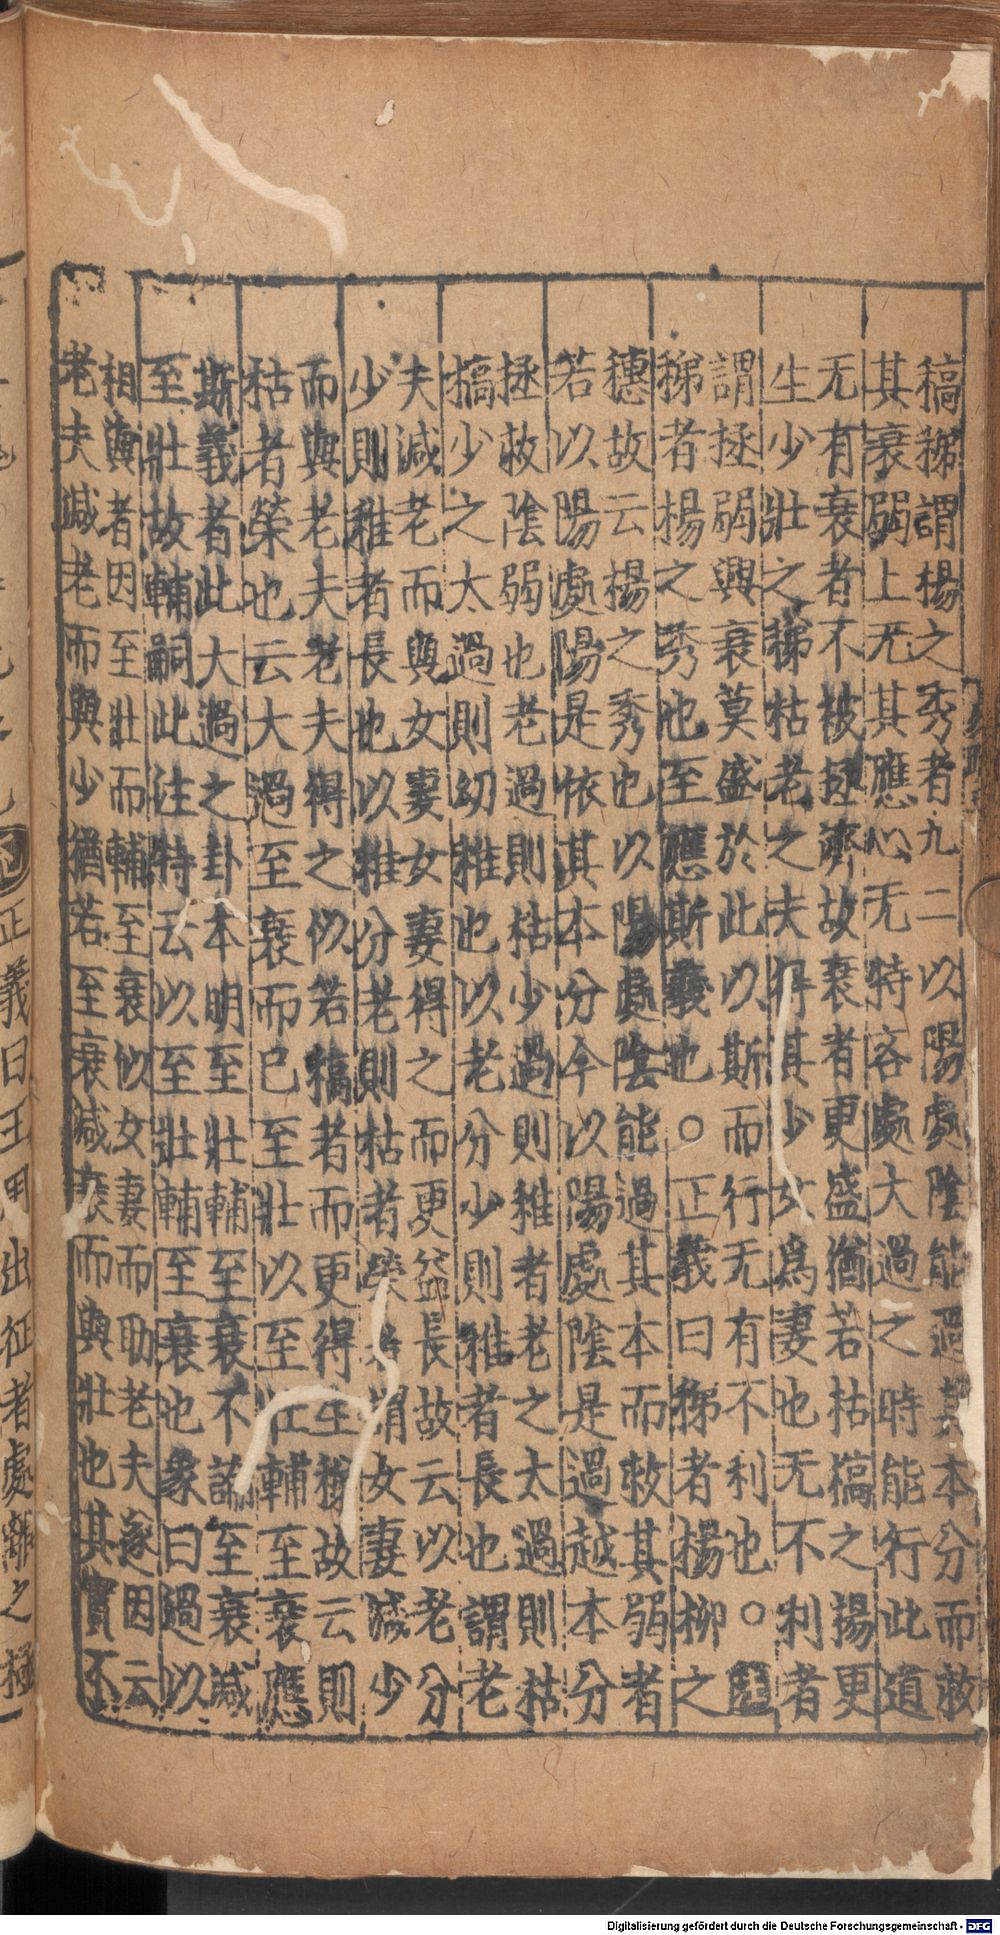 稿稊謂楊之秀者九二以陽處陰能過其本分而救
其衰弱上无其應心无特吝處大過之時能行此道
无有衰者不被拯濟故衰者更盛猶若枯槁之楊更
生少壯之稊枯老之夫得其少女爲妻也无不利者
謂拯弱興衰莫盛於此以斯而行无有不利也○注
稊者楊之秀也至應斯義也○正義曰稊者楊柳之
穗故云楊之秀也以陽處陰能過其本而救其弱者
若以陽處陽是依其本分今以陽處陰是過越本分
拯救陰弱也老過則枯少過則稚者老之太過則枯
槁少之太過則幼稚也以老分少則稚者長也謂老
夫減老而與女妻女妻得之而更益長故云以老分
少則稚者長也以稚分老則枯者榮者謂女妻減少
而與老夫老夫得之似若槁者而更得生稊故云則
枯者榮也云大過至衰而已至壯以至壯輔至衰應
斯義者此大過之卦本明至壯輔至衰不論至衰減
至壯故輔嗣此注特云以至壯輔至衰也象曰過以
相與者因至壯而輔至衰似女妻而助老夫遂因云
老夫減老而與少猶若至衰減衰而與壯也其實不
正義曰王用出征者處離之極
Digitalisierung gefördert durch die Deutsche Forschungsgemeinschaft - DFG